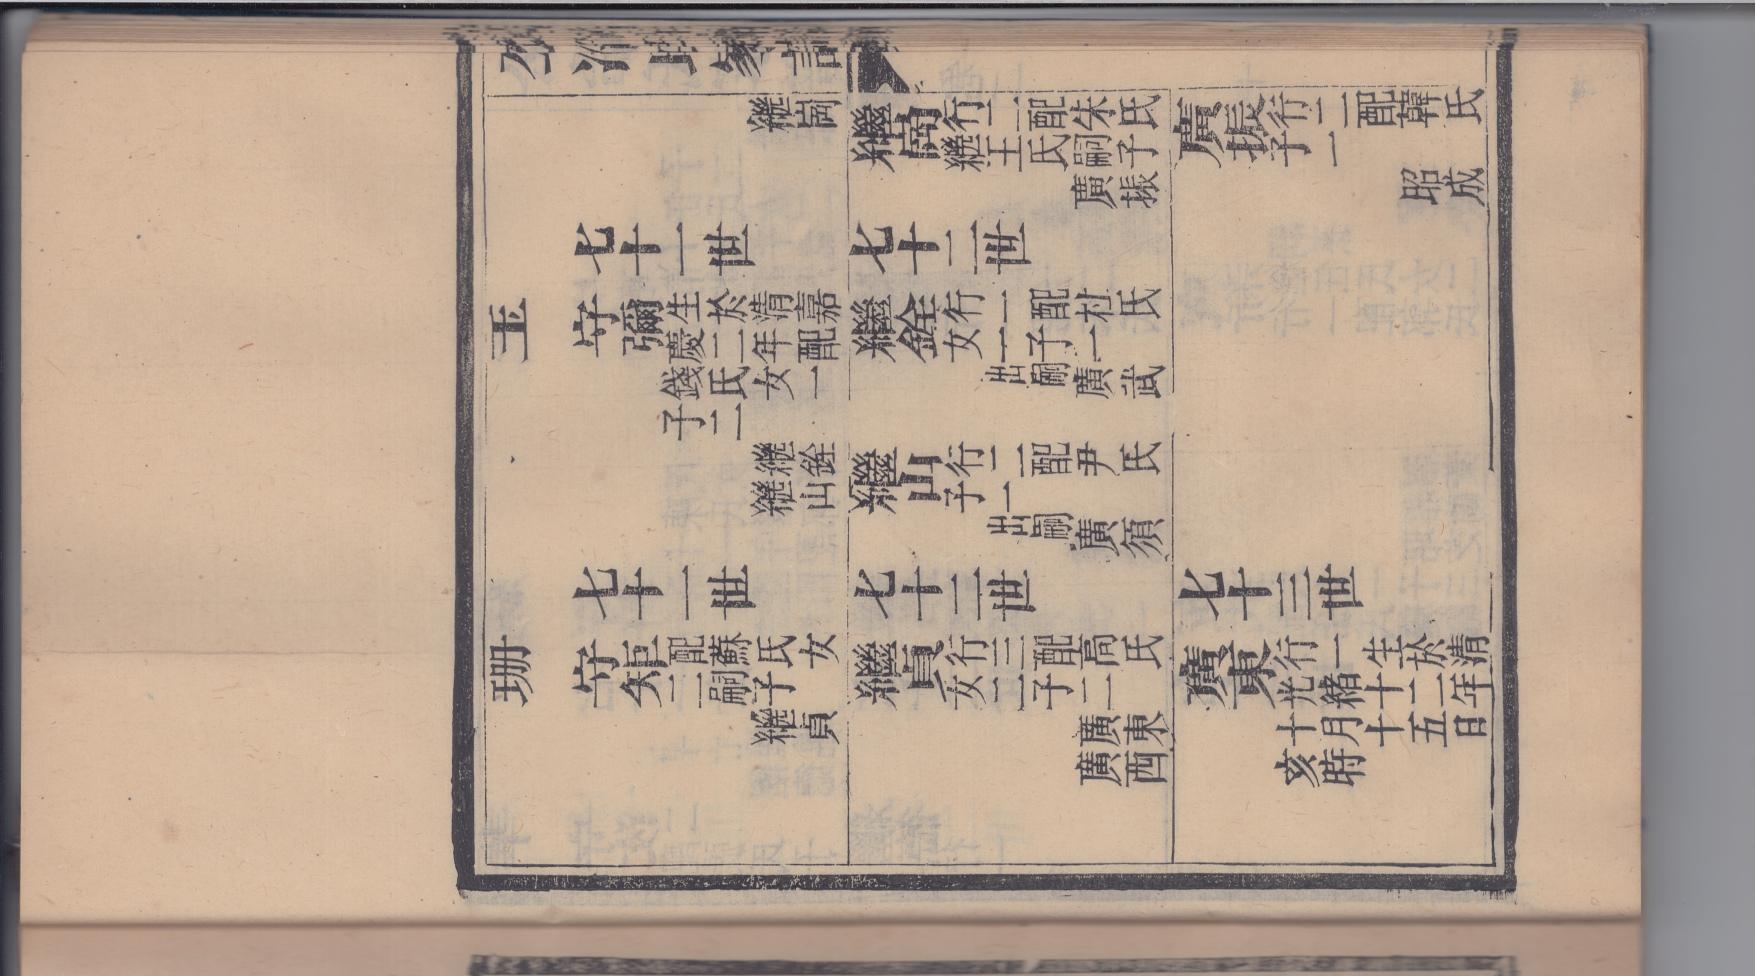 繼崗
七十一世
玉
守彌
生於清嘉
慶二年配
錢氏女一
子二
繼銓
繼山
七十一世
珊
守矩
配蘇氏女
二嗣子
繼貞
繼崗
行二配朱氏
繼王氏嗣子
廣振
七十二世
繼銓
行一配杜氏
女二子一
出嗣廣武
繼山
行二配尹氏
子一
出嗣廣須
七十二世
繼貞
行三配高氏
女二子二
廣東
廣西
廣振
行二配韓氏
子一
昭成
七十三世
廣東
行一生於清
光緒十二年
十月十五日
亥時